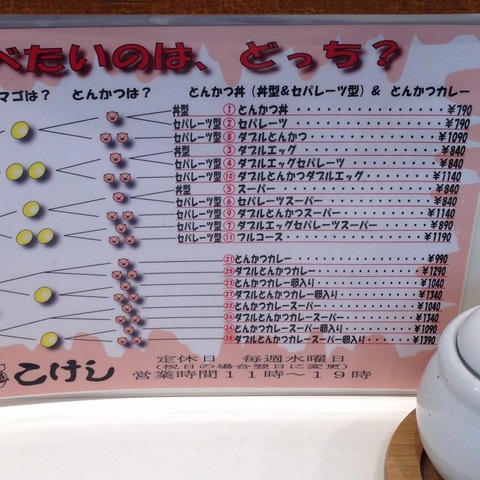 べたいのは、どっち？
マゴは？ とんかつは？ とんかつ丼（丼型&セパレーツ型）& とんかつカレー
丼型 ① とんかつ丼 ¥790
セパレーツ型 ② セパレーツ ¥790
セパレーツ型 ⑧ ダブルとんかつ ¥1090
丼型 ③ ダブルエッグ ¥840
セパレーツ型 ④ ダブルエッグセパレーツ ¥840
セパレーツ型 ⑩ ダブルとんかつダブルエッグ ¥1140
丼型 ⑤ スーパー ¥840
セパレーツ型 ⑥ セパレーツスーパー ¥840
セパレーツ型 ⑨ ダブルとんかつスーパー ¥1140
セパレーツ型 ⑦ ダブルエッグセパレーツスーパー ¥890
セパレーツ型 ⑪ フルコース ¥1190
㉑ とんかつカレー ¥990
㉕ ダブルとんかつカレー ¥1290
㉓ とんかつカレー卵入り ¥1040
㉗ ダブルとんかつカレー卵入り ¥1340
㉒ とんかつカレースーパー ¥1040
㉖ ダブルとんかつカレースーパー ¥1340
㉔ とんかつカレースーパー卵入り ¥1090
㉘ ダブルとんかつカレースーパー卵入り ¥1390
こけし
定休日 毎週水曜日
(祝日の場合翌日に変更)
営業時間１１時～１９時